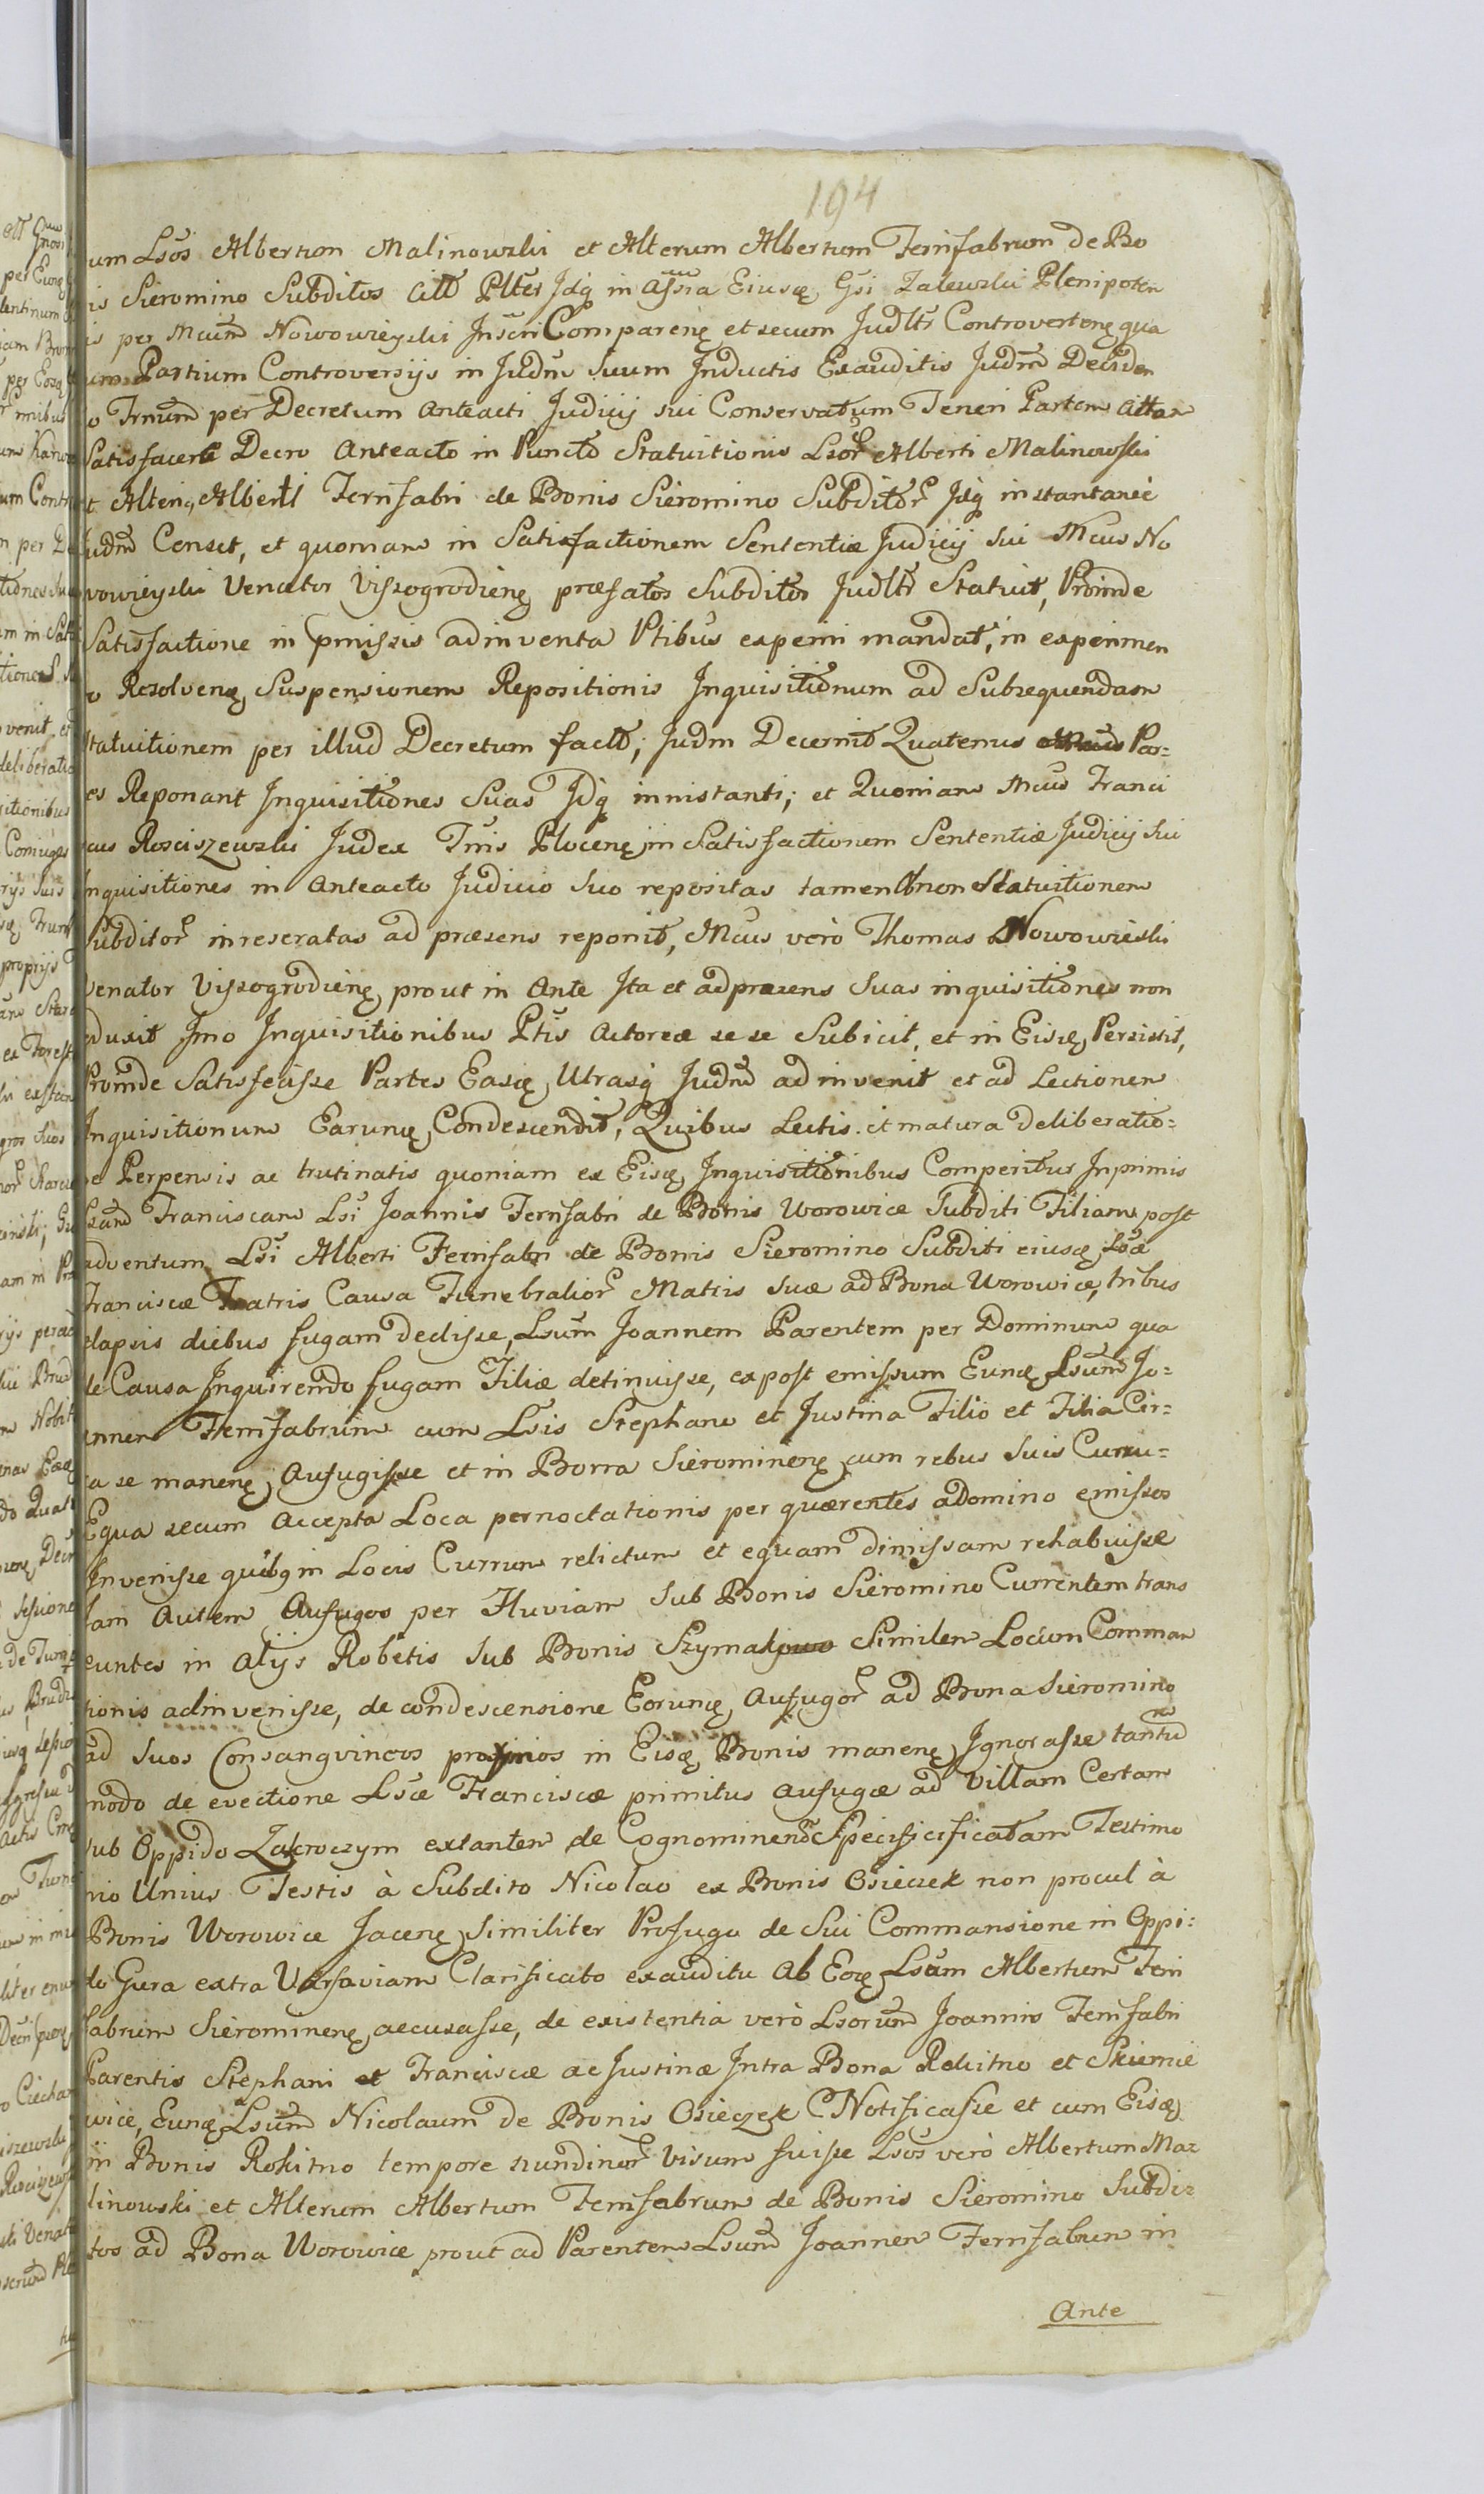 194
um Lsos Albertum Malinowski et Alterum Albertum Ferrifabrum de Bo
is Sieromino Subditos Citt Pltes Jdq in assia Eiusq Gsi Zalewski Plenipoten
is per Mcum Nowowieyski Inscri Comparenq et secum Judltr Controvertenq qua
um Partium Controversijs in Judm Suum Inductis Exauditis Judm Deciden
o Trnum per Decretum Anteacti Judicij sui Conservatum Teneri Partem Attam
Satisfacere Decro Anteacto in Puncto Statuitionis Lsor Alberti Malinowski
t Alterig Alberti Ferrifabri de Bonis Sieromino Subditor Jdq instantanee
Judm Censet, et quoniam in Satisfactionem Sententiæ Judicij sui Mcus No
wowieyski Venator Vissogrodienq præfatos Subditos Judltr Statuit, Proinde
Satisfactione in pmissis adinventa Ptibus experiri mandat, in experimen
o Resolvenq Suspensionem Repositionis Inquisitionum ad Subsequendam
tatuitionem per illud Decretum fact; Judm Decernit Quatenus Par=
es Reponant Inquisitiones Suas Jdq innistanti; et Quoniam Mcus Franci
cus Rosciszewski Judex Tris Plocenq in Satisfactionem Sententiæ Judicij Sui
Inquisitiones in Anteacto Judicio suo repositas tamen Obnon Statuitionem
Subditor inreseratas ad præsens reponit, Mcus verò Thomas Nowowieski
Venator Vissogrodienq prout in Ante Ita et ad præsens Suas inquisitiones non
eduxit Imo Inquisitionibus Ptis Actoreæ se se Subicit, et in Eisq Persistit,
Proinde Satisfecisse Partes Easq Utrasq Judm adinvenit et ad Lectionem
Inquisitionum Earunq Condescendit, Quibus Lectis et matura Deliberatio=
ne Perpensis ac trutinatis quoniam ex Eisq Inquisitionibus Comperitur Inprimis
Lsam Franciscam Lsi Joannis Ferrifabri de Bonis Worowice Subditi Filiam post
adventum Lsi Alberti Ferrifabri de Bonis Sieromino Subditi eiusq Lsæ
Franciscæ Fratris Causa Funebralior Matris suæ ad Bona Worowice, tribus
elapsis diebus fugam dedisse, Lsum Joannem Parentem per Dominum qua
de Causa Inquirendo fugam Filiæ detinuisse, expost emissum Eunq Lsum Jo=
annem Ferrifabrum cum Lsis Stephano et Justina Filio et Filia Cir=
ca se manenq, Aufugisse et in Borra Sierominenq cum rebus suis Curru=
Equa secum Accepta Loca pernoctationis per quærentes a Domino emissos
Invenisse quibq in Locis Currum relictum et equam dimissam rehabuisse
Jam Autem Aufugos per Fluviam Sub Bonis Sieromino Currentem trans
euntes in Alijs Robetis Sub Bonis Szymakowo Similem Locum Comman
tionis adinvenisse, de condescensione Eorunq Aufugor ad Bona Sieromino
ad suos Consanguineos proprios in Eisq Bonis manenq Ignorasse tantum
modo de evectione Lsæ Franciscæ primitus Aufugæ ad Villam Certam
sub Oppido Zakroczym extantem de Cognominend Specificificatam Testimo
nio Unius Testis à Subdito Nicolao ex Bonis Osieczek non procul à
Bonis Worowice Jacenq Similiter Profugo de Sui Commansione in Oppi:
do Gura extra Varsaviam Clarificato exauditu Ab Eoq Lsum Albertum Ferri
fabrum Sierominenq accusasse, de existentia verò Lsorum Joannis Ferrifabri
Parentis Stephani et Franciscæ ac Justinæ Intra Bona Rokitno et Skiernie
wice, Eunq Lsum Nicolaum de Bonis Osieczek Notificasse et cum Eisq
in Bonis Rokitno tempore nundinor Visum fuisse Lsos verò Albertum Ma=
linowski et Alterum Albertum Ferrifabrum de Bonis Sieromino Subdi=
tos ad Bona Worowice prout ad Parentem Lsum Joannem Ferrifabrum in
Ante